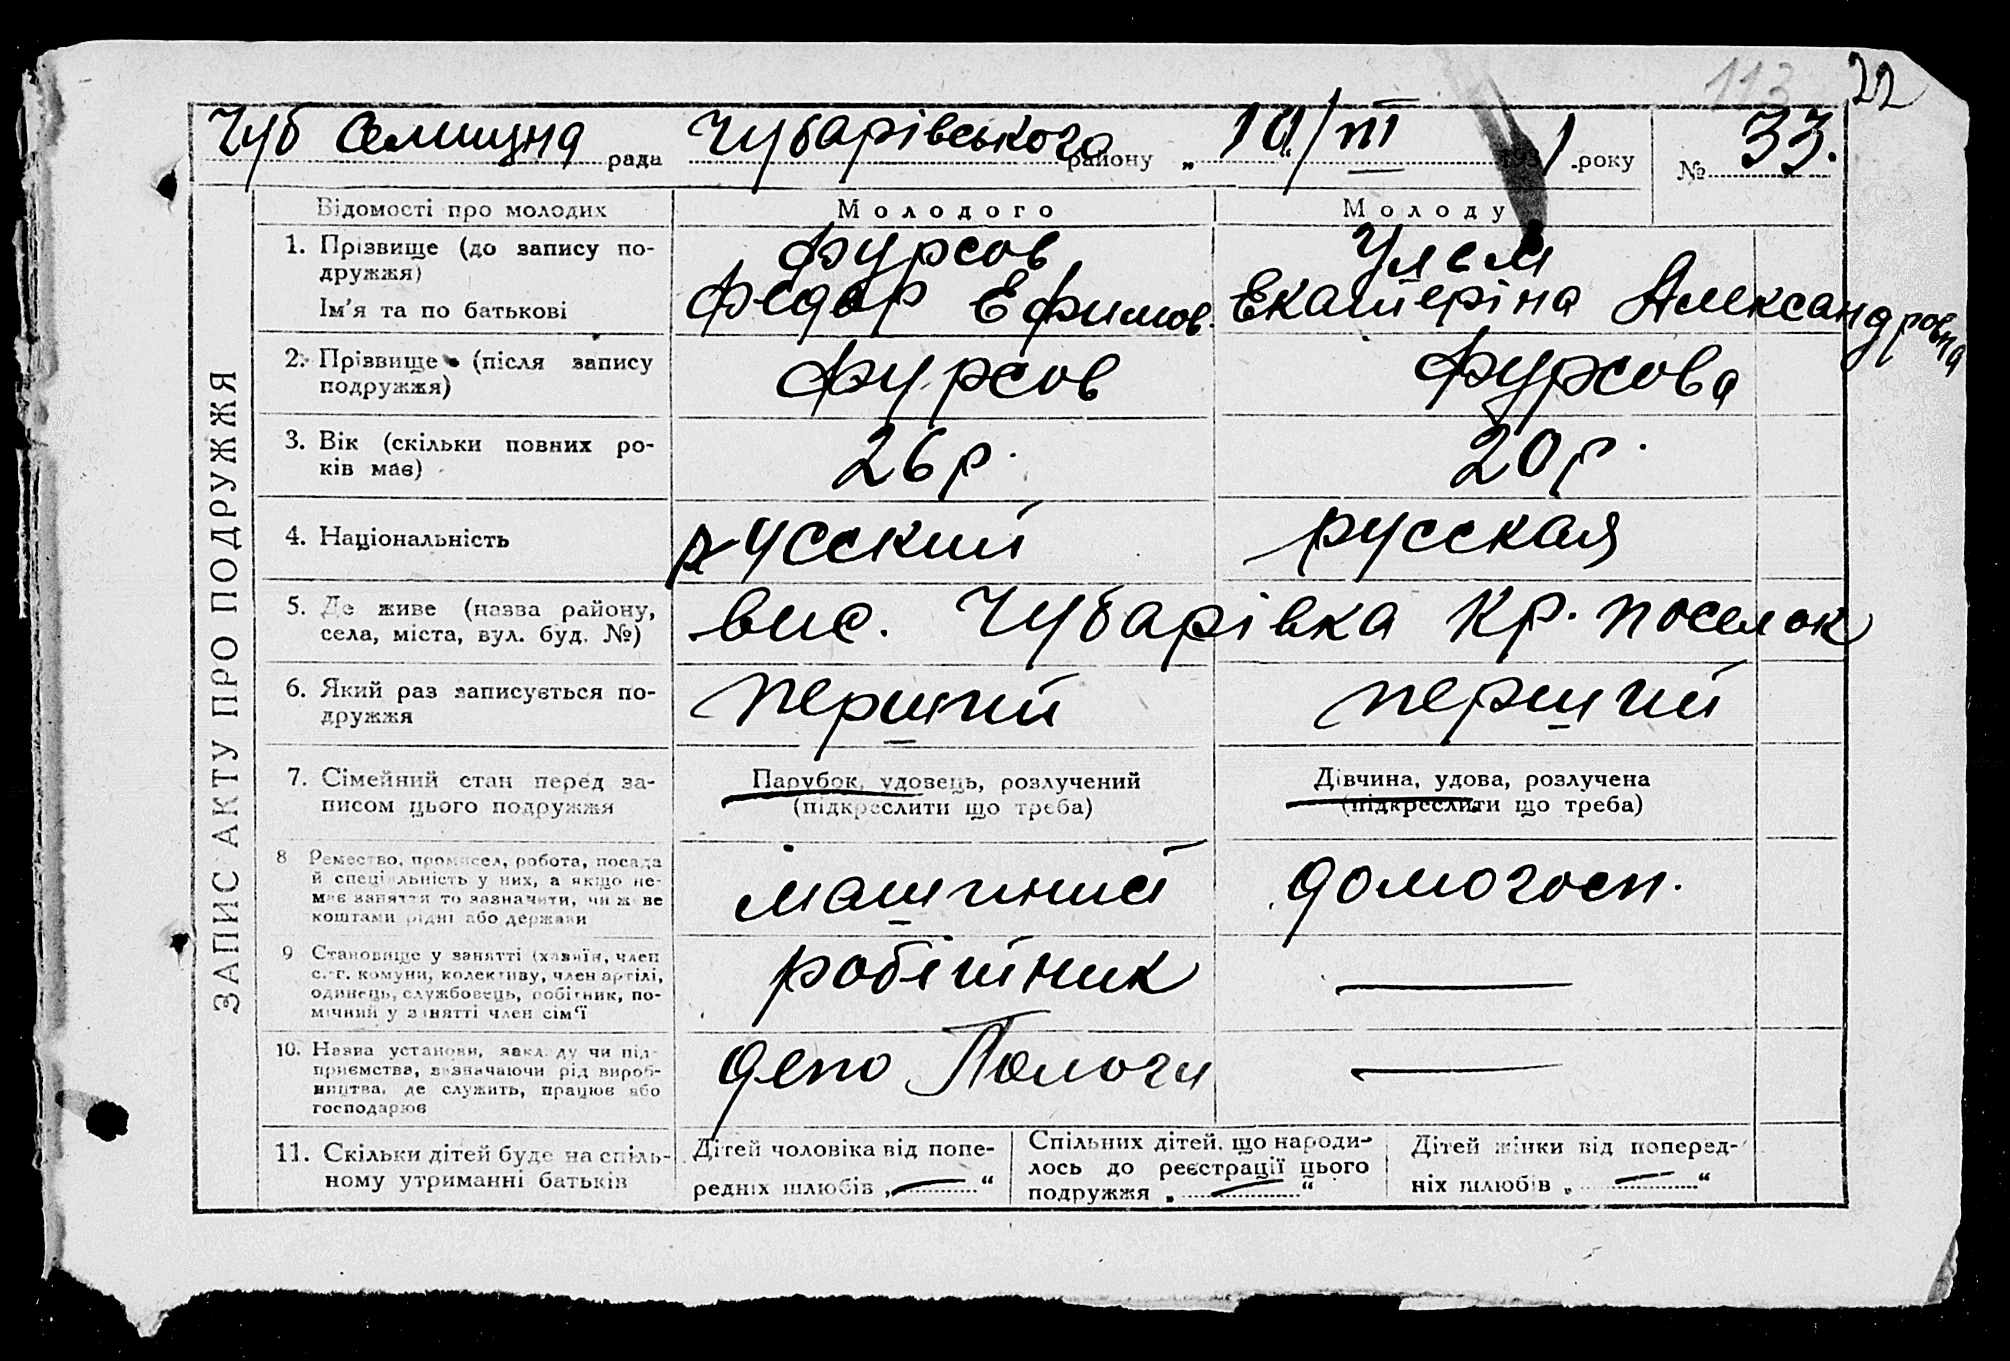 113 22
Чуб Селищна рада Чубарівського району „10“/III 1931 року № 33.
ЗАПИС АКТУ ПРО ПОДРУЖЖЯ
Відомості про молодих Молодого Молоду
1. Прізвище (до запису по-
дружжя)
Фурсов
Ім'я та по батькові
Федор Ефимов. Екатеріна Александровна
2. Прізвище (після запису
подружжя)
Фурсов Фурсова
3. Вік (скільки повних ро-
ків має)
26 р. 20 р.
4. Національність русский русская
5. Де живе (назва району,
села, міста, вул. буд. №)
вис. Чубарівка Кр. поселок
6. Який раз записується по-
дружжя
перший перший
7. Сімейний стан перед за-
писом цього подружжя
Парубок, удовець, розлучений
(підкреслити що треба)
Дівчина, удова, розлучена
(підкреслити що треба)
8 Ремество, промисел, робота, посада
й спеціяльність у них, а якщо не-
має заняття то зазначити, чи живе
коштами рідні або держави
домогосп.
9 Становище у занятті (хазяїн, член
с.-г. комуни, колективу, член артілі,
одинець, службовець, робітник, по-
мічний у занятті член сім'ї
робітник
10. Назва установи, закладу чи під-
приємства, зазначаючи рід вироб-
ництва, де служить, працює або
господарює
депо Пологи
11. Скільки дітей буде на спіль-
ному утриманні батьків
Дітей чоловіка від попе-
редніх шлюбів „ “
Спільних дітей, що народи-
лось до реєстрації цього
подружжя „ “
Дітей жінки від поперед-
ніх шлюбів „ “